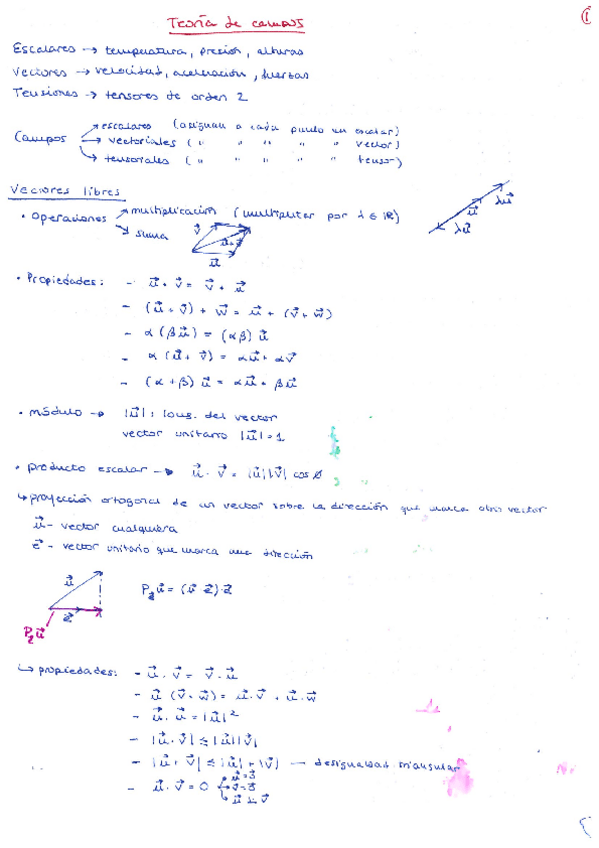 Teoría de campos
①
Escalares → temperatura, presión, alturas
Vectores → velocidad, aceleración, fuerzas
Tensiones → tensores de orden 2
Campos → escalares (asignan a cada punto un escalar)
→ vectoriales ( " " " " " vector)
→ tensoriales ( " " " " " tensor)
Vectores libres
• Operaciones → multiplicación (multiplicar por λ ∈ ℝ)
→ suma
v⃗ u⃗+v⃗ u⃗
λu⃗ u⃗ λu⃗
• Propiedades: - u⃗ + v⃗ = v⃗ + u⃗
- (u⃗ + v⃗) + w⃗ = u⃗ + (v⃗ + w⃗)
- α (β u⃗) = (αβ) u⃗
- α (u⃗ + v⃗) = αu⃗ + αv⃗
- (α + β) u⃗ = αu⃗ + βu⃗
• módulo → |u⃗| : long. del vector
vector unitario |u⃗| = 1
• producto escalar → u⃗ · v⃗ = |u⃗||v⃗| cos φ
↳ proyección ortogonal de un vector sobre la dirección que marca otro vector
u⃗ - vector cualquiera
e⃗ - vector unitario que marca una dirección
u⃗ e⃗
P u⃗ = (u⃗ · e⃗) · e⃗
↳ propiedades: - u⃗ · v⃗ = v⃗ · u⃗
- u⃗ (v⃗ + w⃗) = u⃗ · v⃗ + u⃗ · w⃗
- u⃗ · u⃗ = |u⃗|²
- |u⃗ · v⃗| ≤ |u⃗||v⃗|
- |u⃗ + v⃗| ≤ |u⃗| + |v⃗| — desigualdad triangular
- u⃗ · v⃗ = 0 → u⃗ = 0⃗
→ v⃗ = 0⃗
→ u⃗ ⊥ v⃗